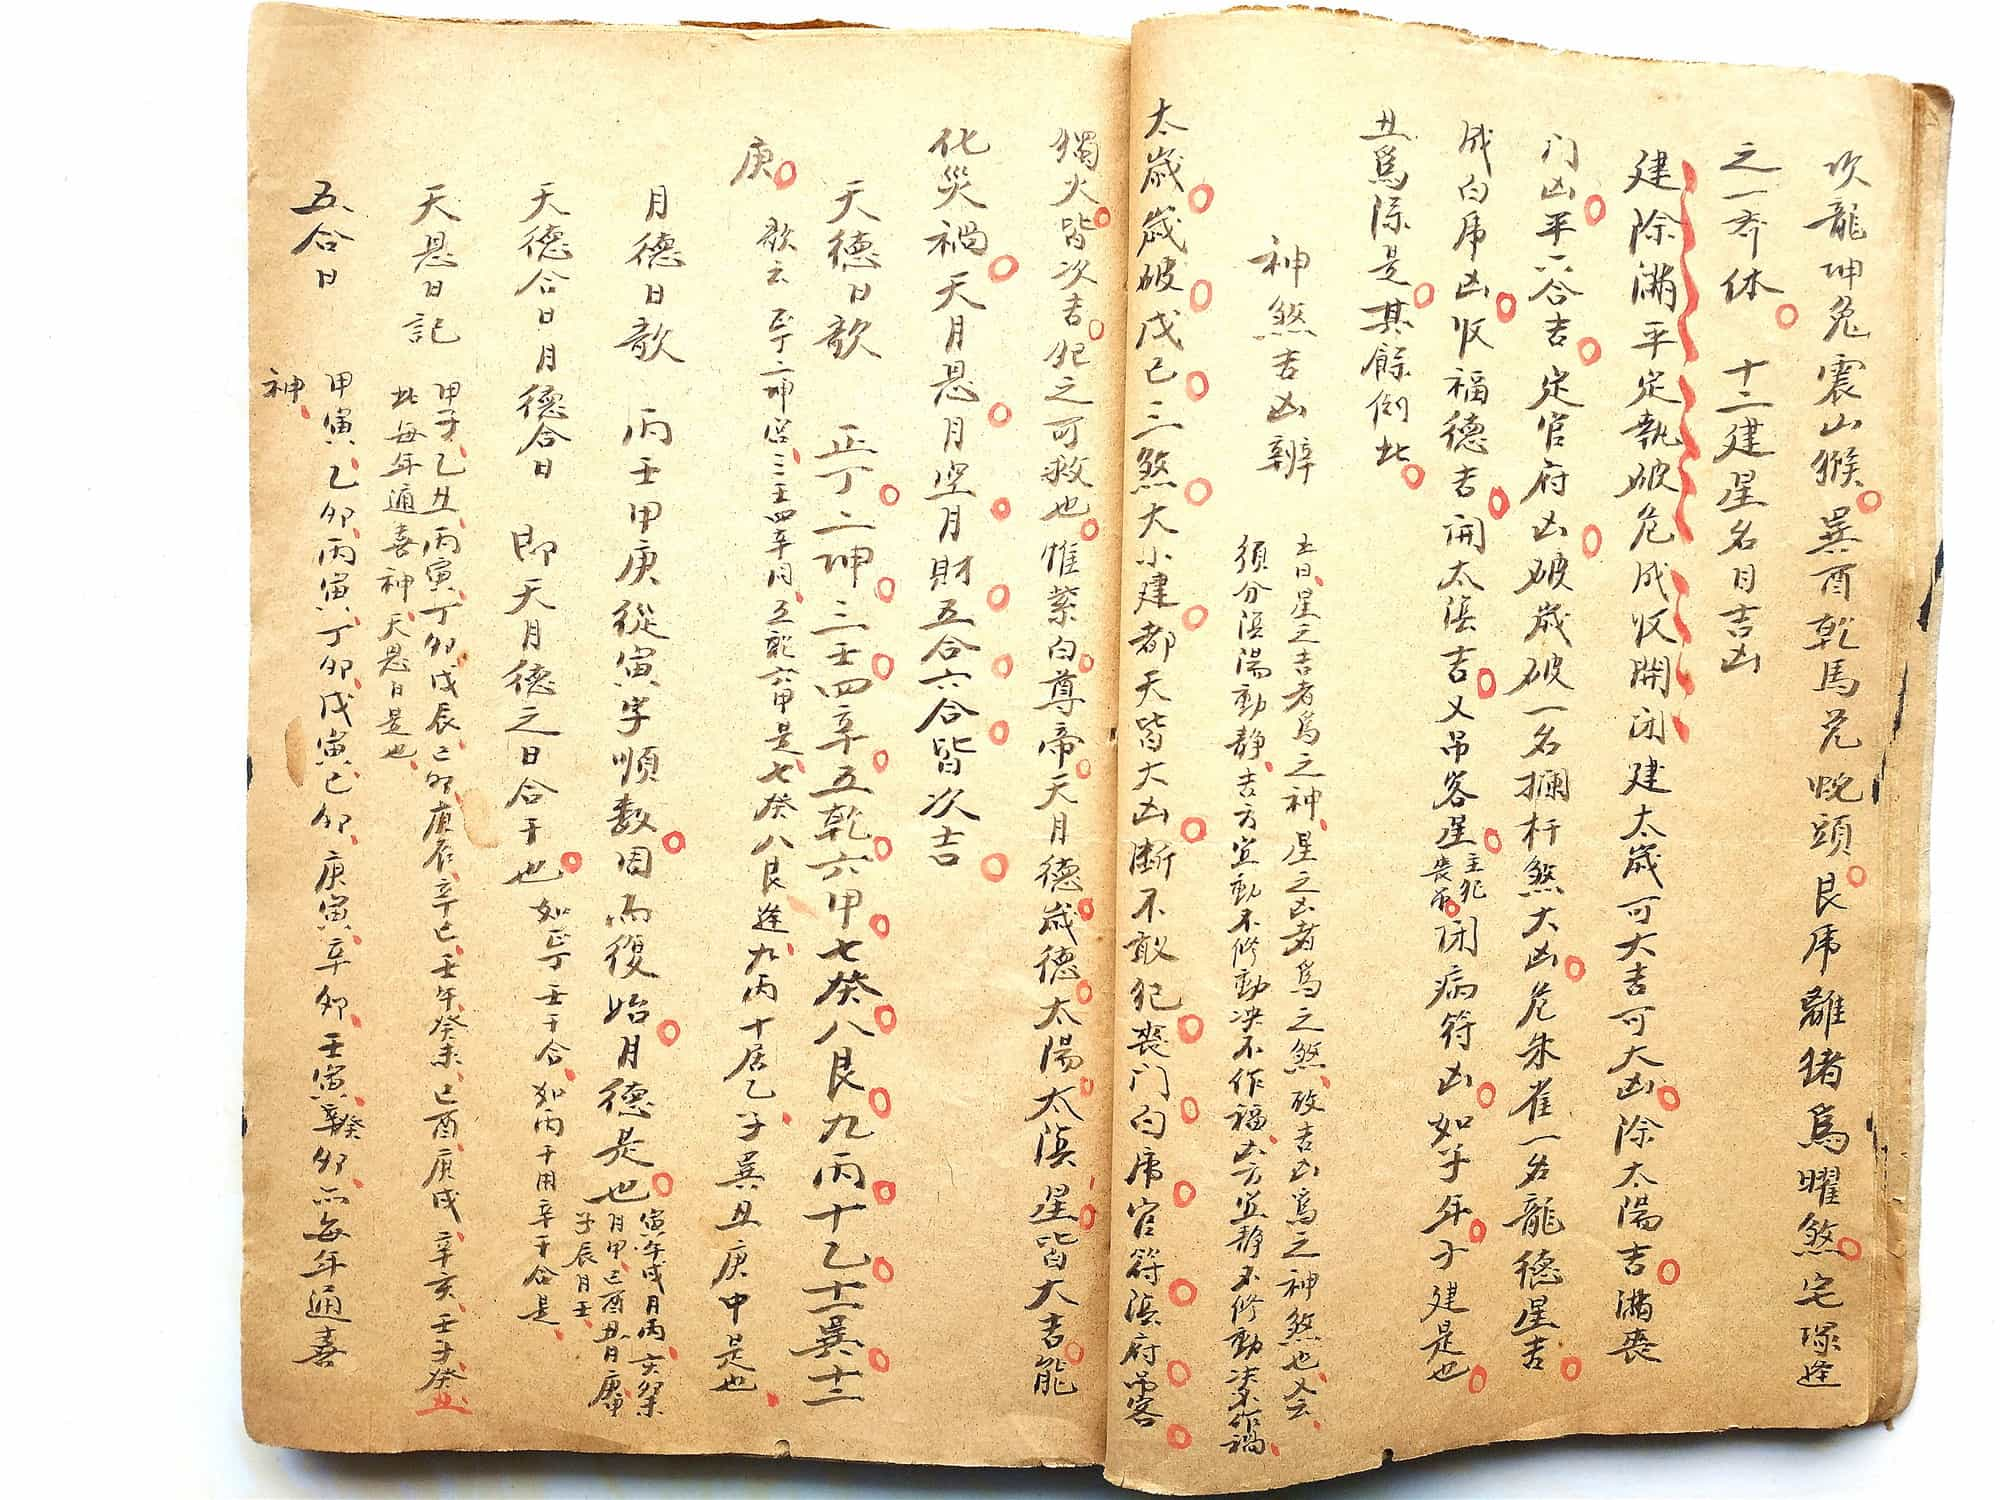 坎龍坤兔震山猴巽酉乾馬兌蛇頭艮虎離猪爲曜煞宅塚逢
之一齐休　十二建星名目吉凶
建除滿平定執破危成收開闭建太歲可大吉可大凶除太陽吉滿喪
门凶平六合吉定官府凶破歲破一名攔杆煞大凶危朱雀一名龍德星吉
成白虎凶收福德吉開太陰吉又吊客星主犯喪吊闭病符凶如子年子建是也
丑爲除是其餘倒此
神煞吉凶辨
五日星之吉者爲之神星之凶者爲之煞故吉凶爲之神煞也又云
須分陰陽動静吉方宜動不修動决不作福凶方宜静不修動决不作禍
太歲歲破戊己三煞大小建都天皆大凶断不敢犯喪门白虎官符陰府吊客
獨火皆次吉犯之可救也惟紫白尊帝天月德歲德太陽太陰星皆大吉能
化災禍天月恩月空月財五合六合皆次吉
天德日歌　正丁二坤三壬四辛五乾六甲七癸八艮九丙十乙十一巽十二
庚　歌云正丁二坤宫三壬四辛同五乾六甲是七癸八艮逢九丙十居乙子巽丑庚中是也
月德日歌　丙壬甲庚從寅字順数周而復始月德是也寅午戌月丙亥
月甲巳酉丑月庚申
子辰月壬
天德合日月德合日　即天月德之日合干也如正丁壬干合如丙干用辛干合是
天恩日記　甲子乙丑丙寅丁卯戊辰己卯庚辰辛巳壬午癸未己酉庚戌辛亥壬子癸丑
此每年通喜神天恩日是也
五合日　甲寅乙卯丙寅丁卯戊寅己卯庚寅辛卯壬寅癸卯而每年通喜
神